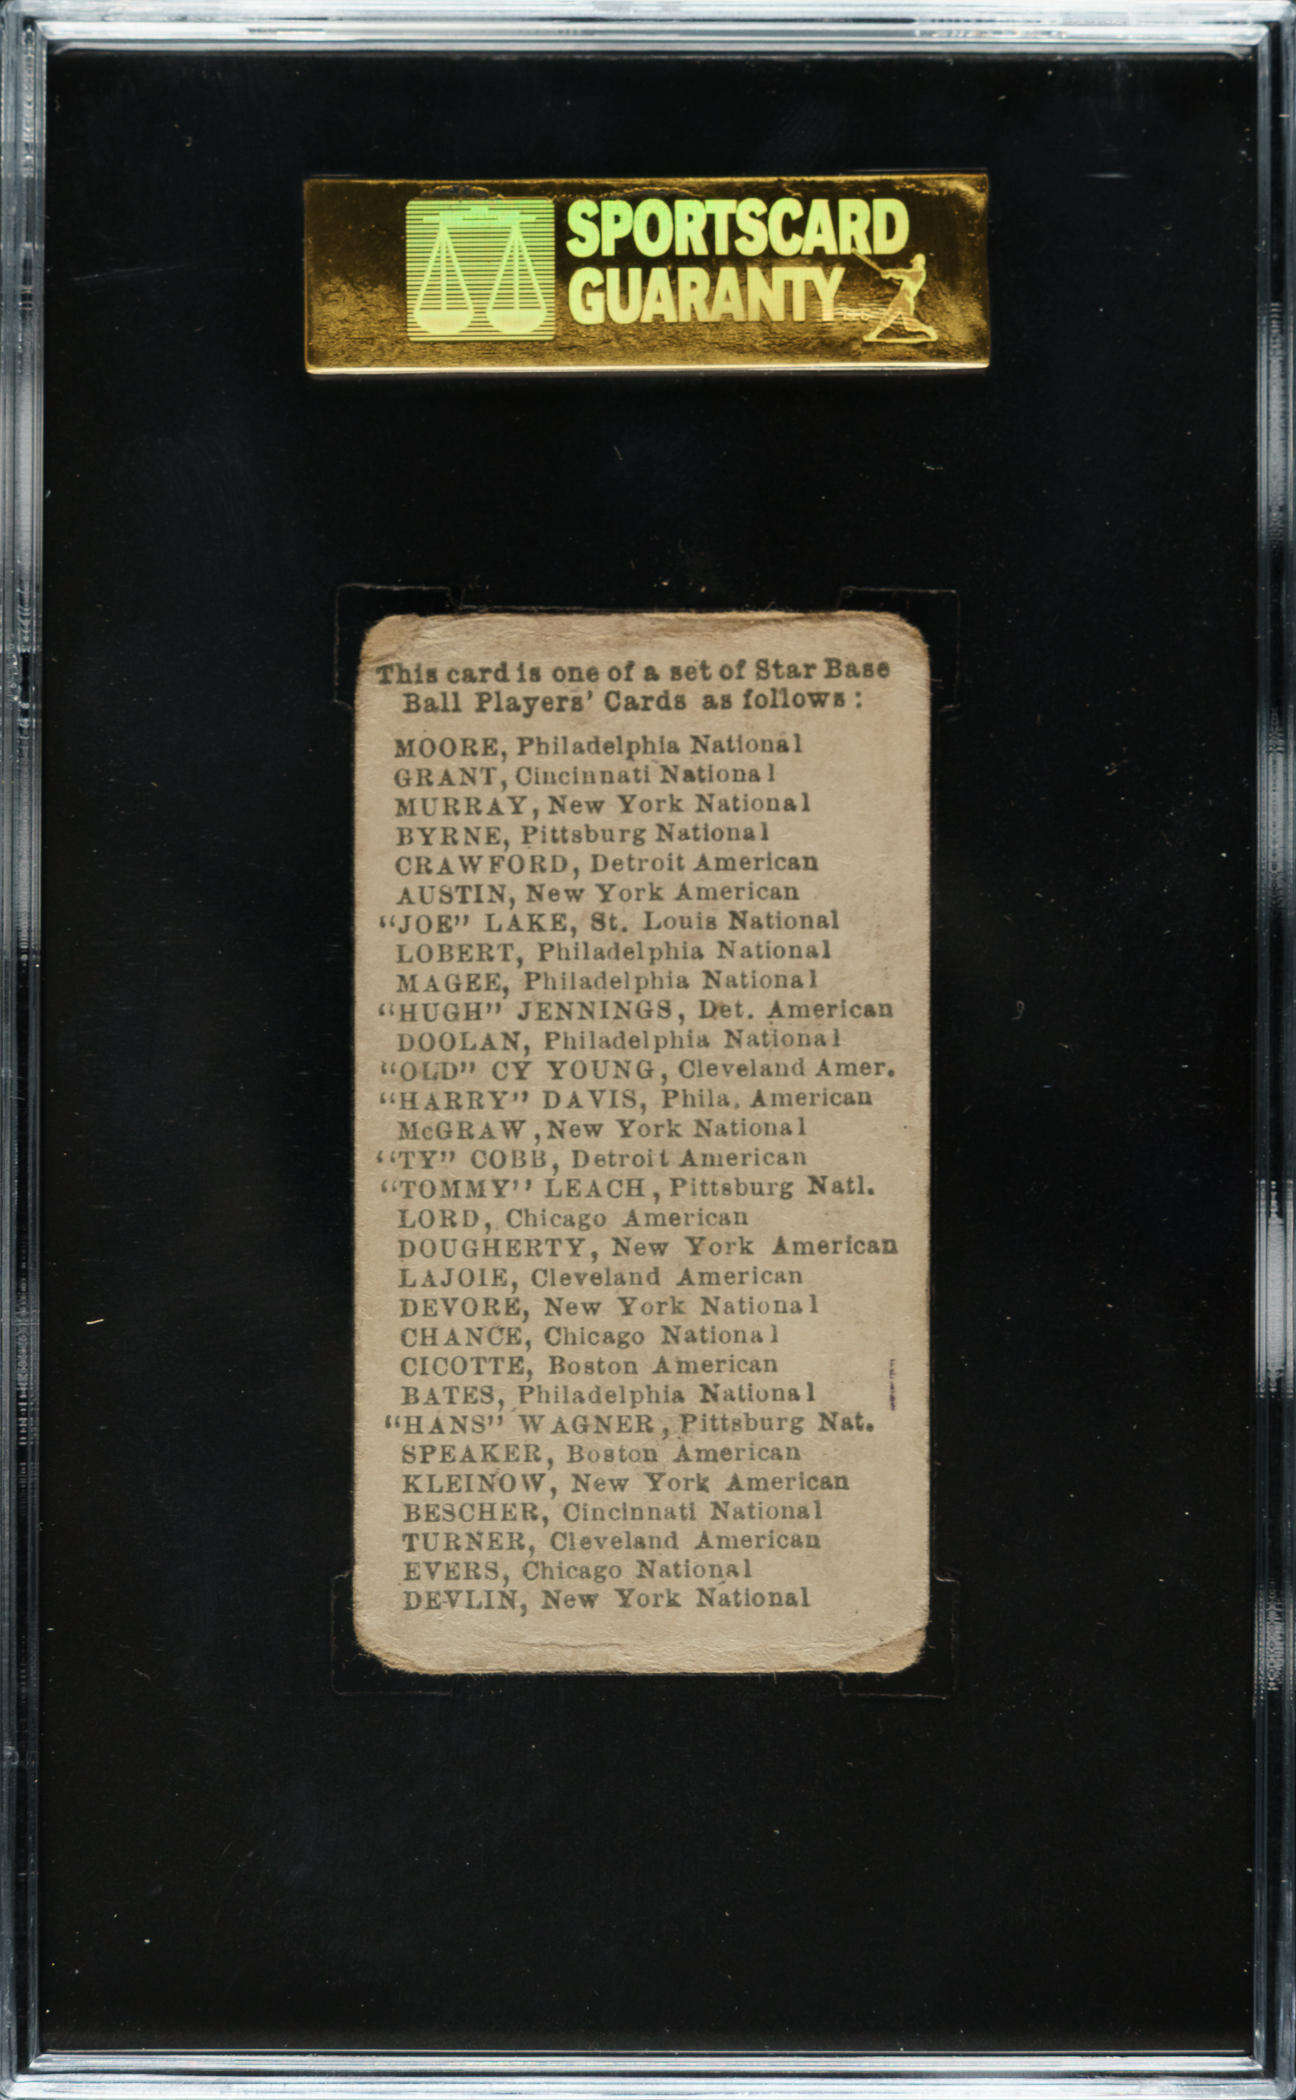 SPORTSCARD
GUARANTY
This card is one of a set of Star Base
Ball Players' Cards as follows:
MOORE, Philadelphia National
GRANT, Cincinnati National
MURRAY, New York National
BYRNE, Pittsburg National
CRAWFORD, Detroit American
AUSTIN, New York American
"JOE" LAKE, St. Louis National
LOBERT, Philadelphia National
MAGEE, Philadelphia National
"HUGH" JENNINGS, Det. American
DOOLAN, Philadelphia National
"OLD" CY YOUNG, Cleveland Amer.
"HARRY" DAVIS, Phila. American
McGRAW, New York National
"TY" COBB, Detroit American
"TOMMY" LEACH, Pittsburg Natl.
LORD, Chicago American
DOUGHERTY, New York American
LAJOIE, Cleveland American
DEVORE, New York National
CHANCE, Chicago National
CICOTTE, Boston American
BATES, Philadelphia National
"HANS" WAGNER, Pittsburg Nat.
SPEAKER, Boston American
KLEINOW, New York American
BESCHER, Cincinnati National
TURNER, Cleveland American
EVERS, Chicago National
DEVLIN, New York National